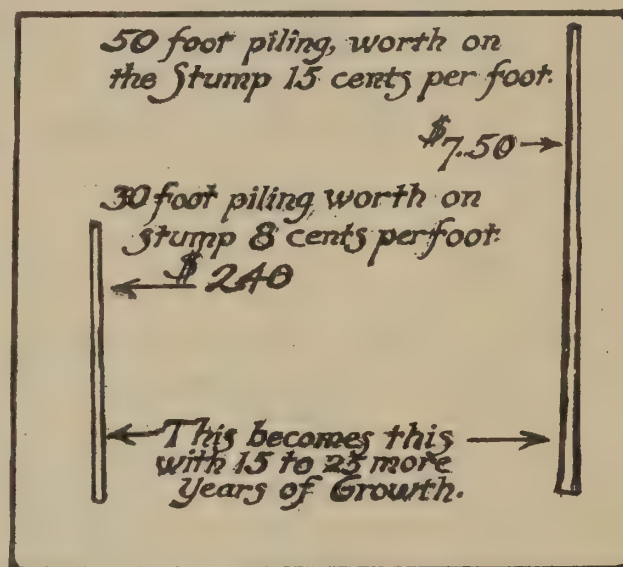 50 foot piling, worth on
the Stump 15 cents per foot.
$7.50
30 foot piling worth on
stump 8 cents per foot.
$ 240
This becomes this
with 15 to 25 more
Years of Growth.